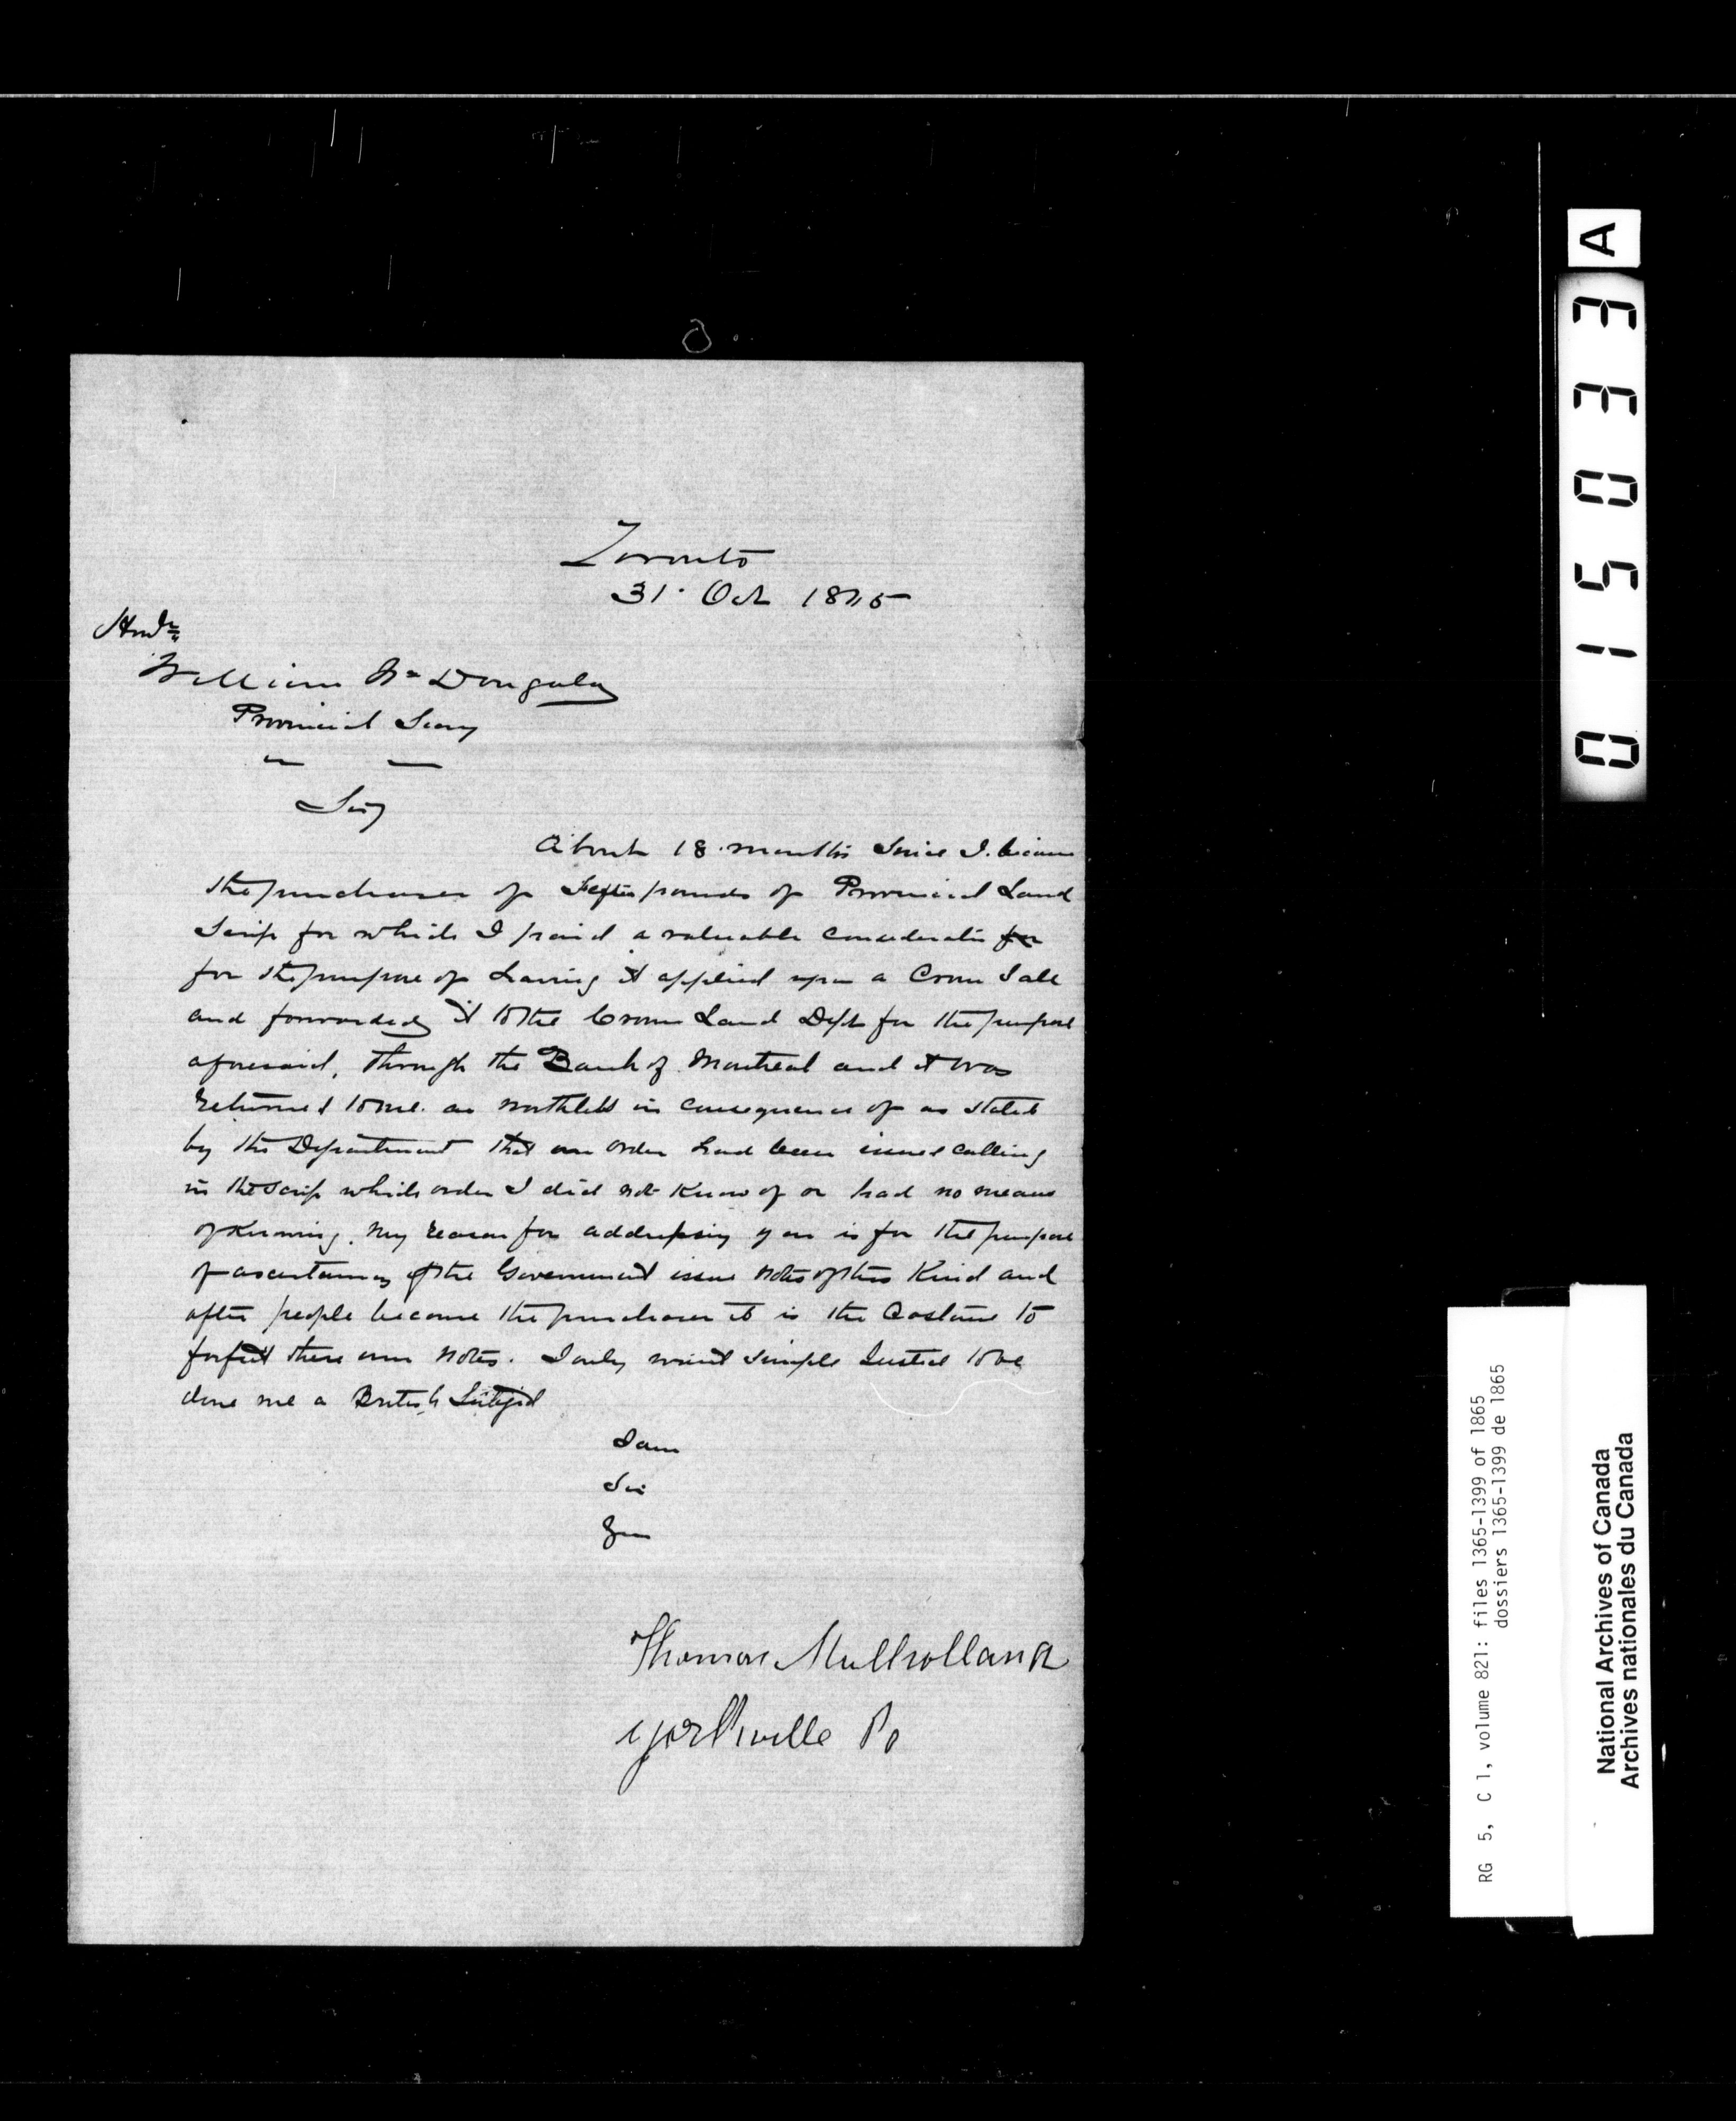 Toronto
31. Oct 1865
Honble
William McDougald
Provincial Secry
Sir
About 18 months Since I. became
the purchaser of pounds of Provincial Land
Scrip for which I paid a valuable consideratin for
for the purpose of having it applied upon a Crown Sale
and forwarded it to the Crown Land Dept for the purpose
aforesaid, through the Bank of Montreal and it was
returned to me. as worthless in consequence of as stated
by the Department that an order had been issued calling
in the Scrip which order I did not know of or had no means
of knowing. My reason for addressing you is for the purpose
of ascertaining if the Government issue notes of this Kind and
after people become the purchaser it is the Custome to
forfeit there own notes. I only want simple Justice to be
done me a British Subject
I am
Sir
Thomas Mulholland
Yorkville Po
A
015033
RG 5, C 1, volume 821: files 1365-1399 of 1865
dossiers 1365-1399 de 1865
National Archives of Canada
Archives nationales du Canada